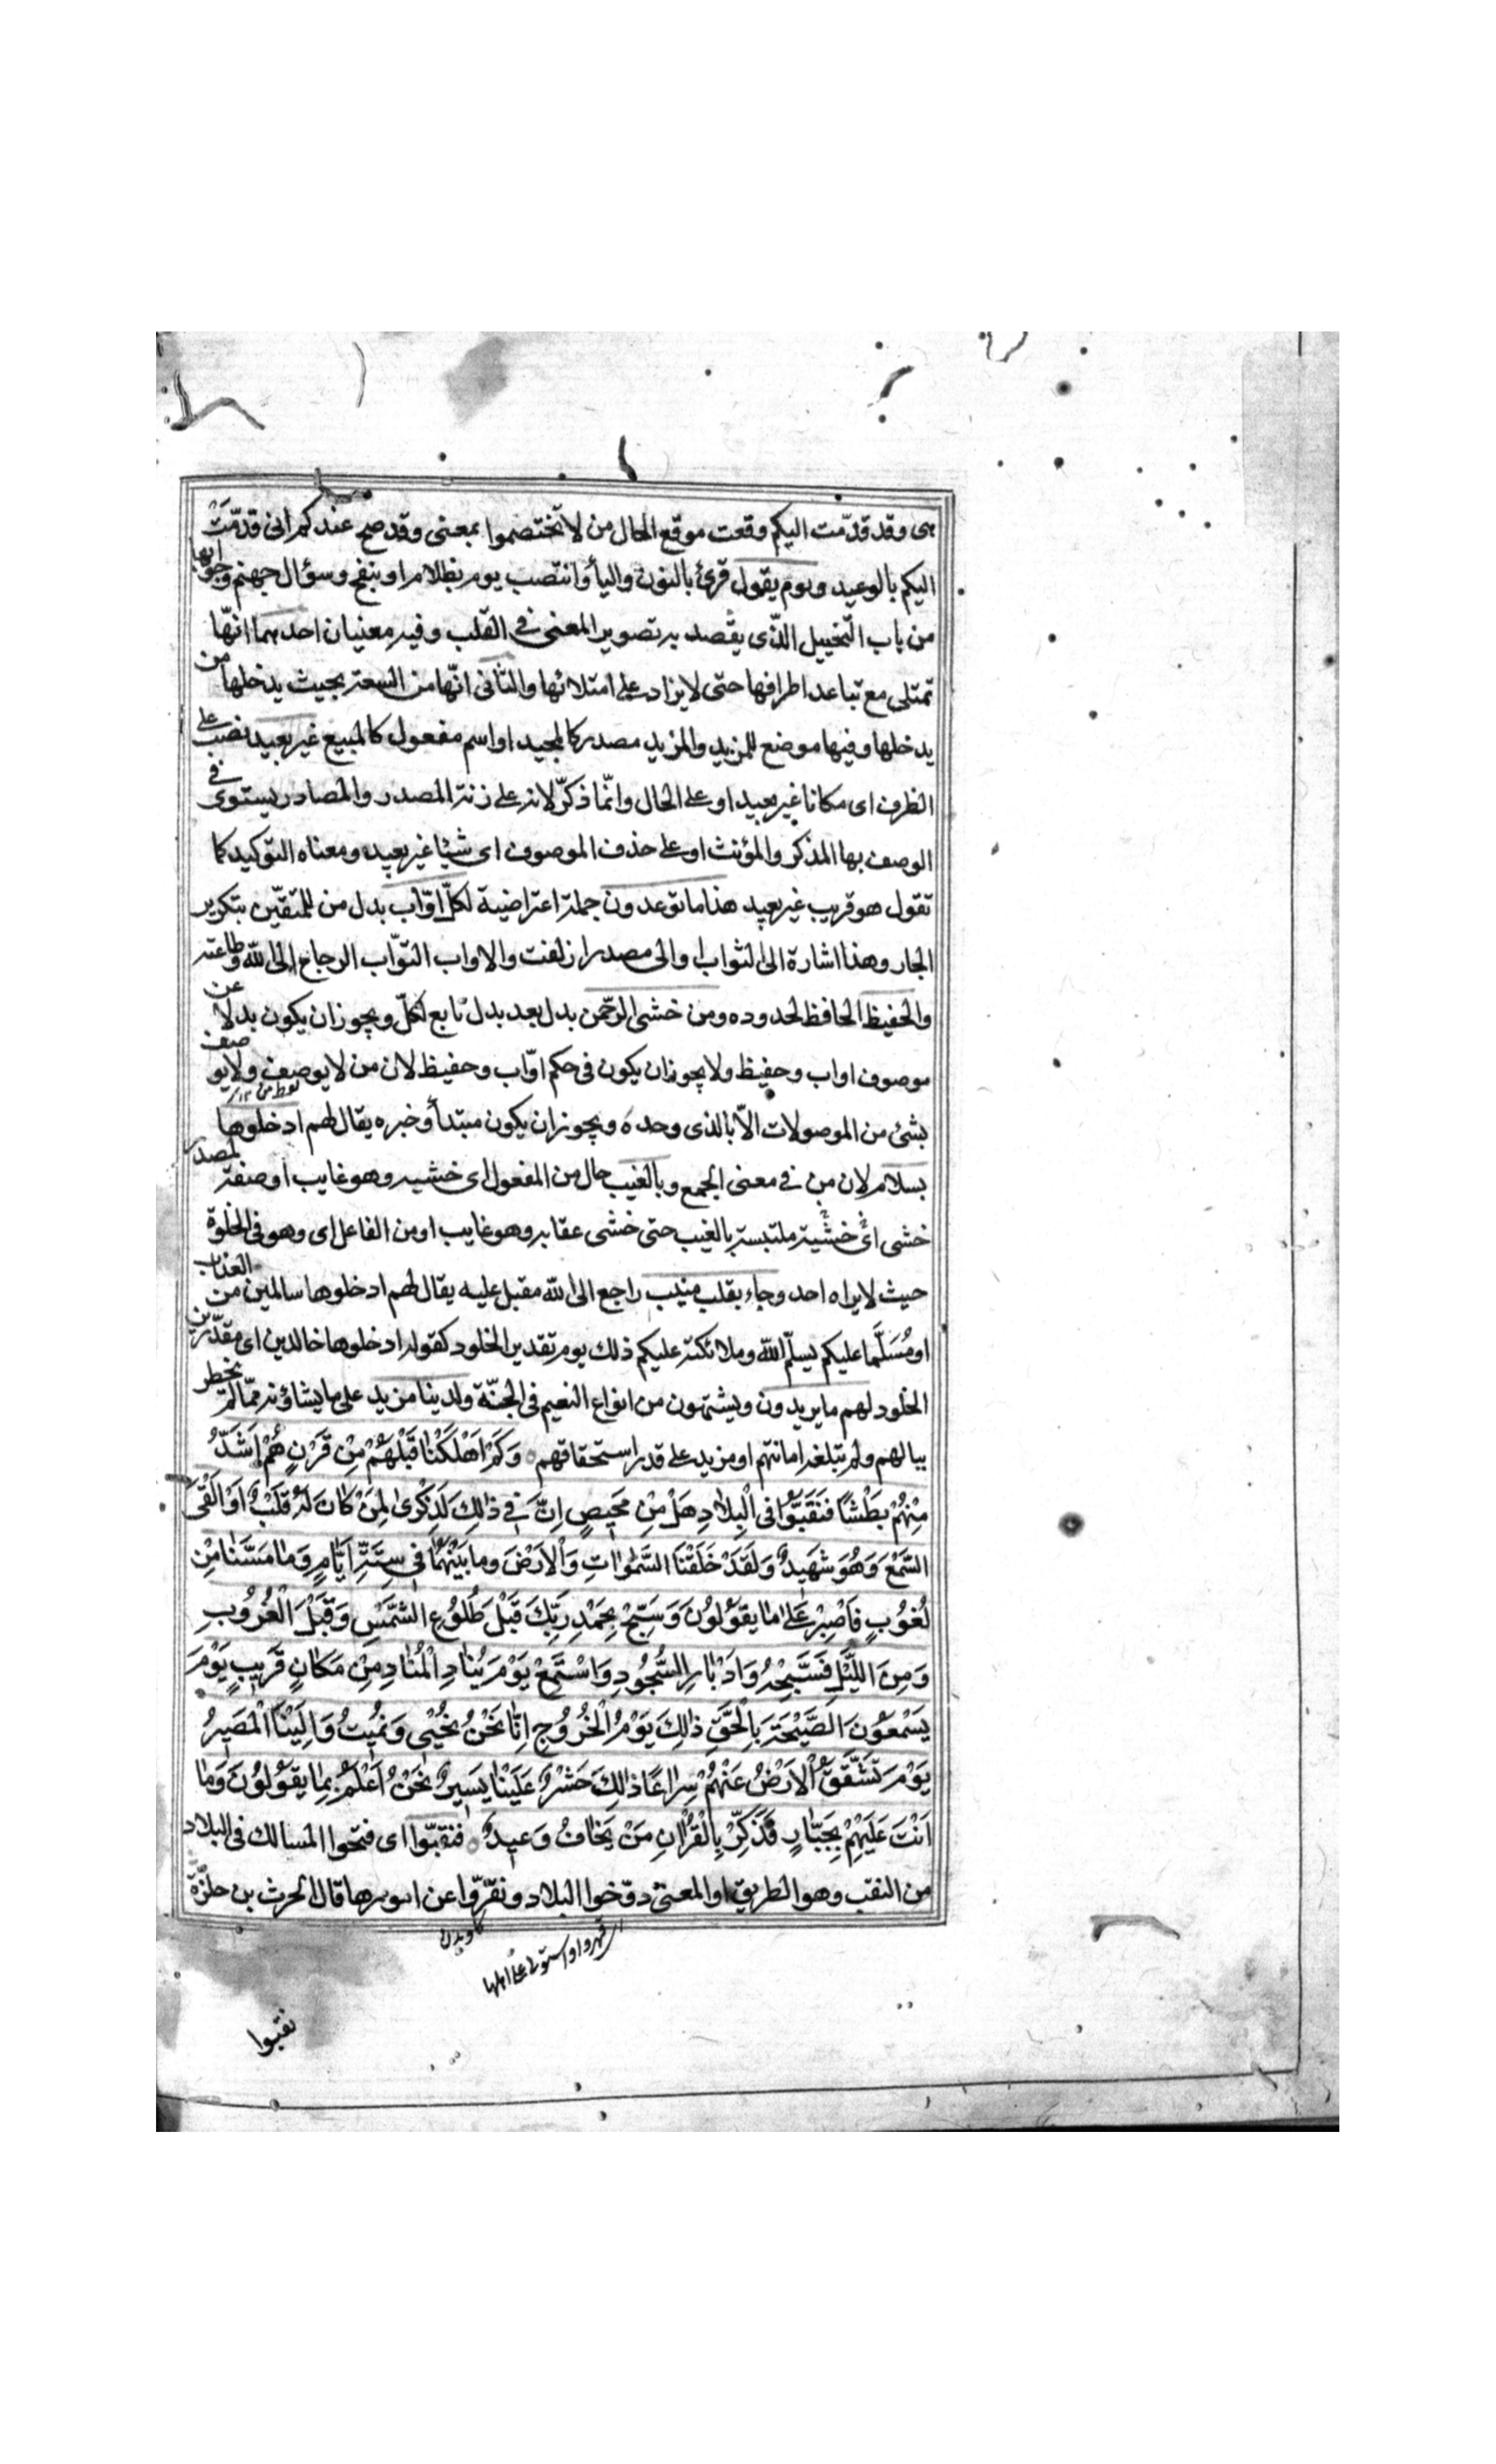 هى وقد قدّمت اليكم وقعت موقع الحال من لا تختصموا بمعنى وقد صح عندكم انى قدمّت
اليكم بالوعيد ويوم يقول قرئ بالنون واليأ وانتصب يوم بظلام او بنفخ وسؤال جهنم وجوابها
من باب التخييل الذّى يقصد به تصوير المعنى فى القلب وفيه معنيان احدهما انهّا
تمتلى مع تباعد اطرافها حتى لا يزاد على امتلائها والثانى انهّا من السعة بحيث يدخلها من
يدخلها وفيها موضع للمزيد والمزيد مصدر كالمجيد او اسم مفعول كالمبيع غير بعيد نصب على
الظرف اى مكانا غير بعيد او على الحال وانمّا ذكرّ لانه على زنة المصدر والمصادر يستوى فى
الوصف بها المذكر والمؤنث او على حذف الموصوف اى شيئا غير بعيد ومعناه التوكيد كما
تقول هو قريب غير بعيد هذا ما توعدون جملة اعتراضية لكلّ اوّاب بدل من للمتقين بتكرير
الجار وهذا اشارة الى الثواب او الى مصدر ازلفت والاواب التوّاب الرجاع الى الله وطاعته
والحفيظ الحافظ لحدوده ومن خشى الرحمن بدل بعد بدل تابع لكلّ ويجوز ان يكون بدلا عن
موصوف اواب وحفيظ ولا يجوز ان يكون فى حكم اوّاب وحفيظ لان من لا يوصف ولا يوصف
بشئ من الموصولات الاّ بالذى وحده ويجوز ان يكون مبتدأ وخبره يقال لهم ادخلوها
بسلام لان من فى معنى الجمع وبالغيب حال من المفعول اى خشيه وهو غايب او صفة لمصدر
خشى اى خشية ملتبسة بالغيب حتى خشى عقابه وهو غايب او من الفاعل اى وهو فى الخلوة
حيث لا يراه احد وجاء بقلب منيب راجع الى الله مقبل عليه يقال لهم ادخلوها سالمين من العذاب
او مُسَلَّما عليكم يسلّم الله وملائكته عليكم ذلك يوم تقدير الخلود كقوله ادخلوها خالدين اى مقدّرين
الخلود لهم ما يريدون ويشتهون من انواع النعيم فى الجنّة ولدينا مزيد على ما يشاؤنه ممّا لم يخطر
ببالهم ولم تبلغه امانتهم او مزيد على قدر استحقاقهم وَكَمْ اَهْلَكْنٰا قَبْلَهُمْ مِنْ قَرْنٍ هُمْ اَشَدُّ
مِنْهُمْ بَطْشًا فَنَقَّبُوا فِى الْبِلٰادِ هَلْ مِنْ مَحيصٍ اِنَّ فى ذٰلِكَ لَذِكْرىٰ لِمَنْ كٰانَ لَهُ قَلْبٌ اَوْ اَلْقَى
السَّمْعَ وَهُوَ شَهيدٌ وَلَقَدْ خَلَقْنَا السَّمٰوٰاتِ وَالْاَرْضَ وما بَيْنَهُمٰا فى سِتَّةِ اَيّٰامٍ وَمٰا مَسَّنٰا مِنْ
لُغُوبٍ فَاصْبِرْ عَلىٰ مٰا يَقوُلوُنَ وَسَبِّحْ بِحَمْدِ رَبِّكَ قَبْلَ طُلُوعِ الشَّمْسِ وَقَبْلَ الْغُرُوبِ
وَمِنَ اللَّيْلِ فَسَبِّحْهُ وَاَدْبٰارَ السُّجُودِ وَاسْتَمِعْ يَوْمَ يُنٰادِ الْمُنٰادِ مِنْ مَكٰانٍ قَريبٍ يَوْمَ
يَسْمَعُونَ الصَّيْحَةَ بِالْحَقِّ ذٰلِكَ يَوْمُ الْخُرُوجِ اِنّٰا نَحْنُ نُحْيى وَنُميتُ وَاِلَيْنَا الْمَصيرُ
يَوْمَ تَشَقَّقُ الْاَرْضُ عَنْهُمْ سِرٰاعًا ذٰلِكَ حَشْرٌ عَلَيْنٰا يَسيرٌ نَحْنُ اَعْلَمُ بِمٰا يَقوُلوُنَ وَمٰا
اَنْتَ عَلَيْهِمْ بِجَبّٰارٍ فَذَكِّرْ بِالْقُرْاٰنِ مَنْ يَخٰافُ وَعيدِ فنقبّوا اى فتحوا المسالك فى البلاد
من النقب وهو الطريق او المعنى دوّخوا البلاد ونقّروّا عن امورها قال الحرث بن حلزّة
اى قهروا واستولوا على اهلها
كاويدن
نقبوا